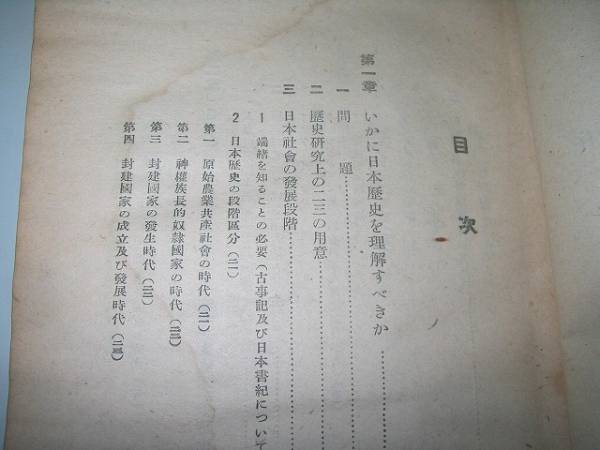 目次
第一章 いかに日本歷史を理解すべきか…………
一 問題…………
二 歷史研究上の二三の用意…………
三 日本社會の發展段階…………
1 端緒を知ることの必要(古事記及び日本書紀について
2 日本歷史の段階區分(二一)
第一 原始農業共產社會の時代(二一)
第二 神權族長的奴隷國家の時代(二二)
第三 封建國家の發生時代(二三)
第四 封建國家の成立及び發展時代(二三)